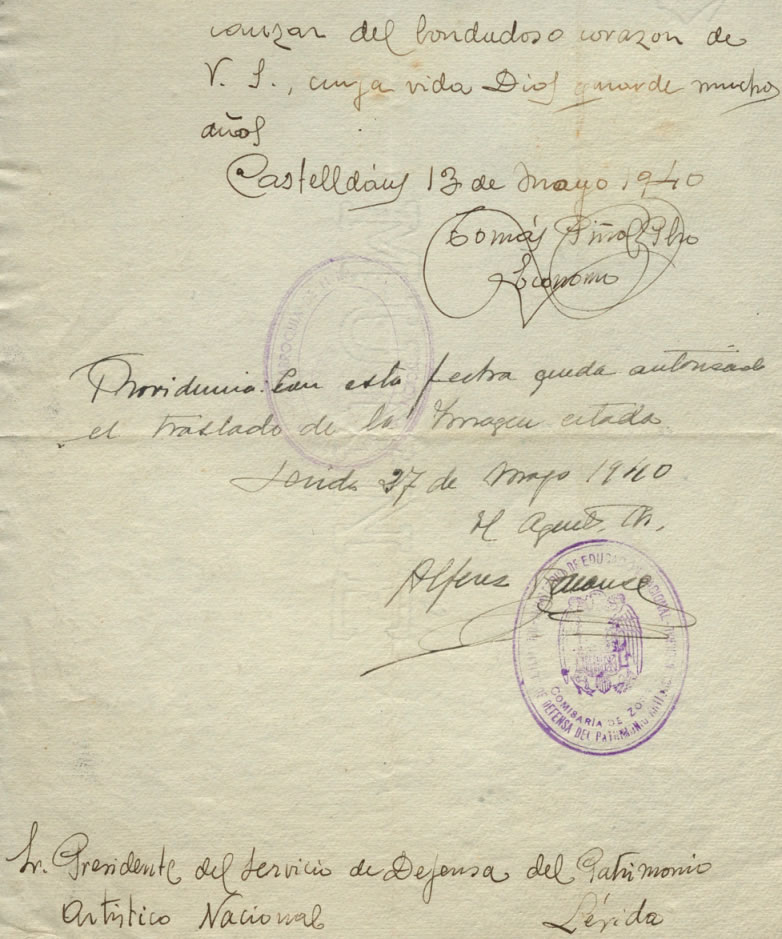 canzar del bondadoso corazon de
V. S., cuya vida Dios guarde muchos
años
Castelldáns 13 de Mayo 1940
Tomás Piñol Pbro
Ecónomo
Providencia: Con esta fecha queda autorisado
el traslado de la Imagen citada
Lerida 27 de Mayo 1940
El Agente,
Alferez
DE EDUCACION NACIONAL
COMISARIA DE ZONA
DE DEFENSA DEL PATRIMONIO
Sr. Presidente del Servicio de Defensa del Patrimonio
Artístico Nacional Lérida